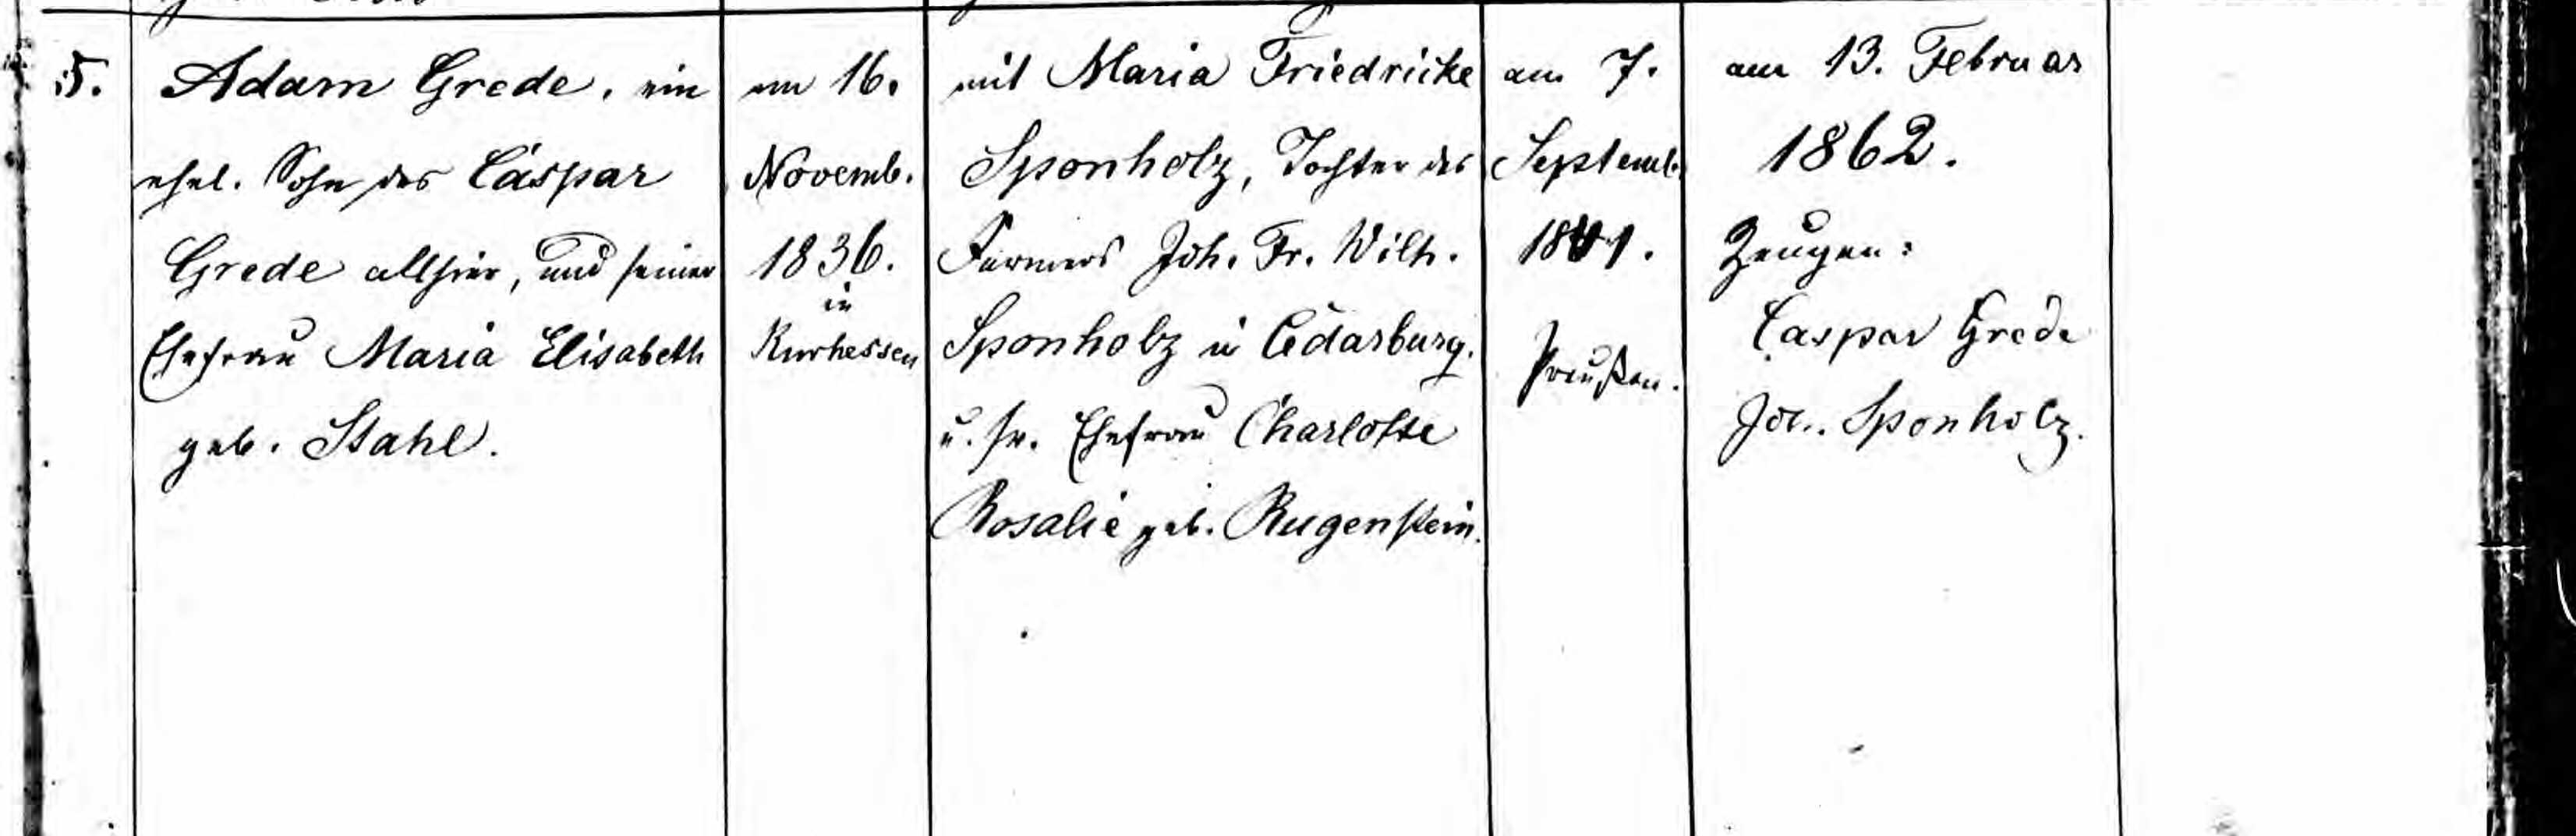 5.
Adam Grede, ein
ehel. Sohn des Caspar
Grede allhier, und seiner
Ehefrau Maria Elisabeth
geb. Stahl.
am 16.
Novemb.
1836.
in
Kurhessen
mit Maria Friedricke
Sponholz, Tochter des
Farmers Joh. Fr. Wilh.
Sponholz in Cedarburg.
u. sr. Ehefrau Charlotte
Rosalie geb. Rugenstein.
am 7.
Septemb.
1841.
Preußen.
am 13. Februar
1862.
Zeugen:
Caspar Grede
Joh. Sponholz.